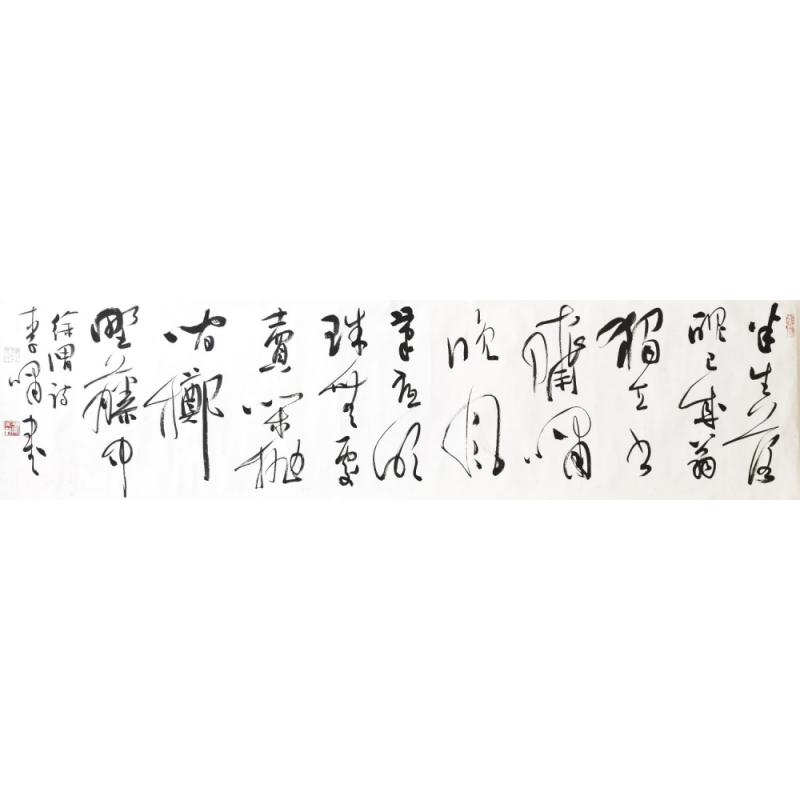 半生落
魄已成翁
獨立書
齋嘯
晚風
筆底明
珠無處
賣閑拋
閑擲
野藤中
徐渭詩
李嘯書